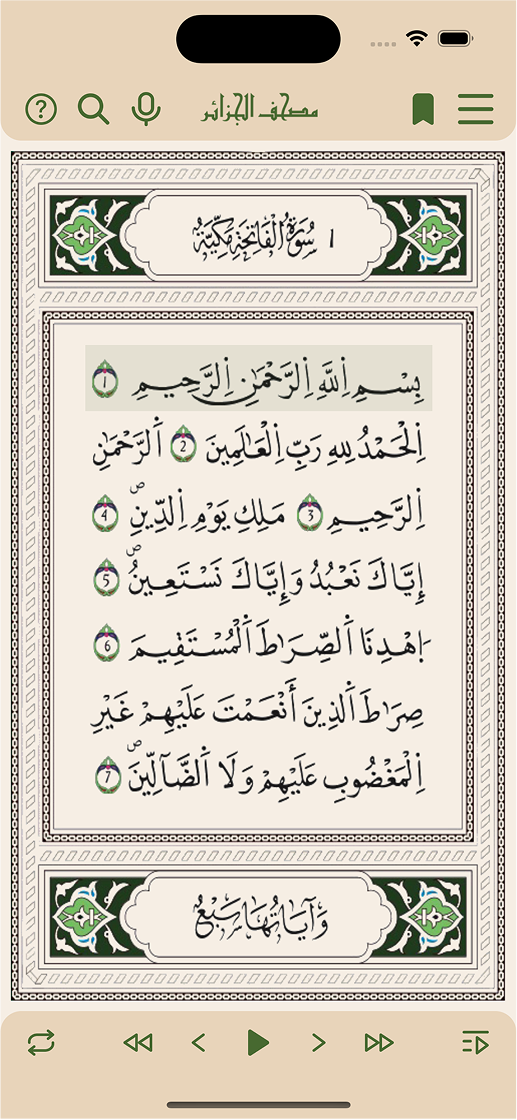 مصحف الجزائر
١ سُورَةُ الْفَاتِحَةِ مَكِّيَّةٌ
بِسْمِ اِ۬للَّهِ اِ۬لرَّحْمَٰنِ اِ۬لرَّحِيمِ 1
اِ۬لْحَمْدُ لِلهِ رَبِّ اِ۬لْعَٰلَمِينَ 2 اَ۬لرَّحْمَٰنِ
اِ۬لرَّحِيمِ 3 مَلِكِ يَوْمِ اِ۬لدِّينِۖ 4
إِيَّاكَ نَعْبُدُ وَإِيَّاكَ نَسْتَعِينُۖ 5
اَ۪هْدِنَا اَ۬لصِّرَٰطَ اَ۬لْمُسْتَقِيمَ 6
صِرَٰطَ اَ۬لذِينَ أَنْعَمْتَ عَلَيْهِمْ غَيْرِ
اِ۬لْمَغْضُوبِ عَلَيْهِمْ وَلَا اَ۬لضَّآلِّينَۖ 7
وَآيَاتُهَا سَبْعٌ